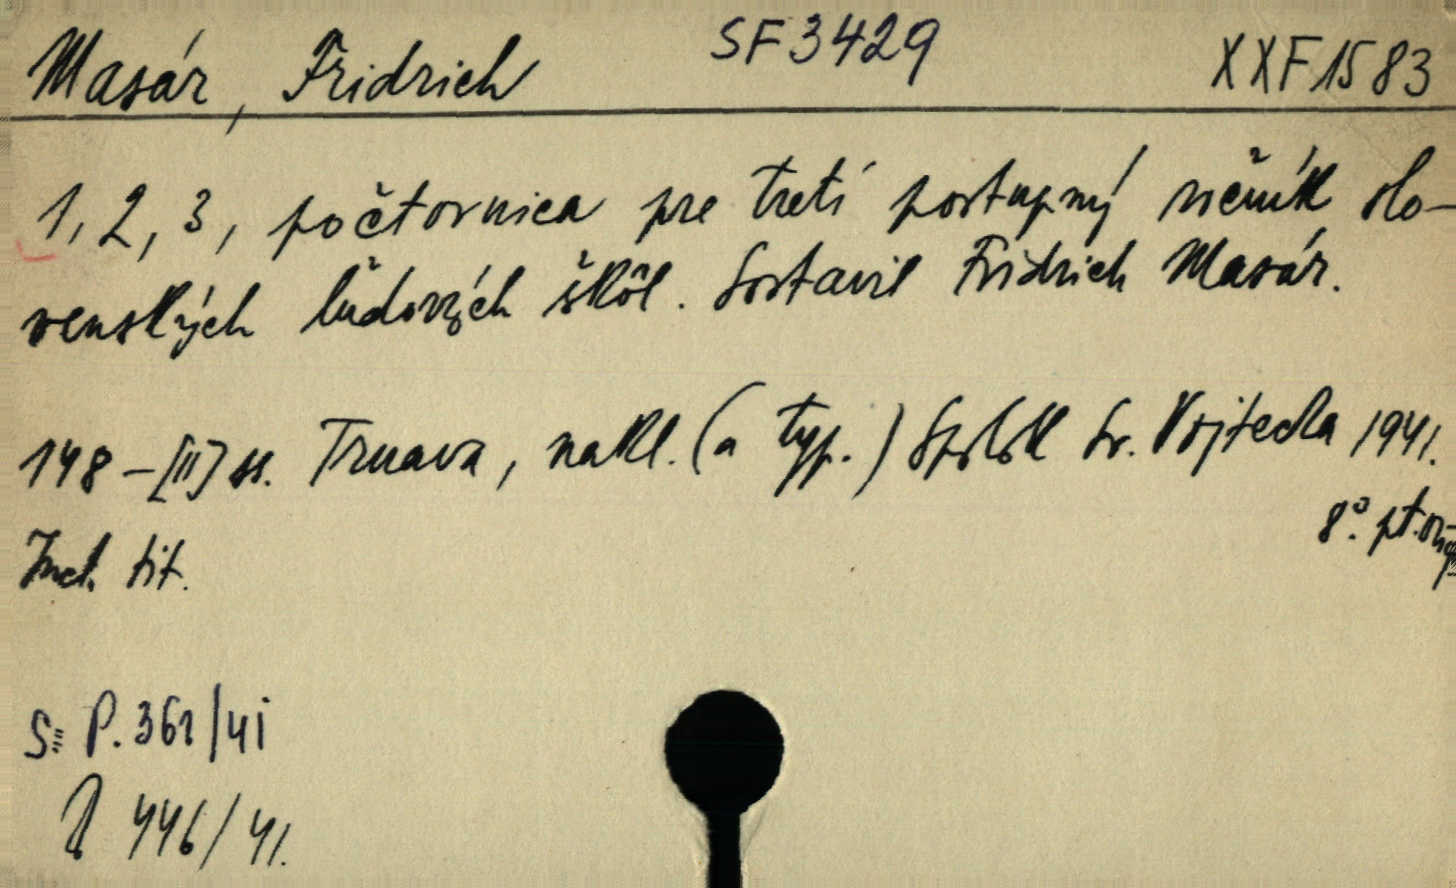 Masár, Fridrich SF3429 XXF1583
1, 2, 3, počtovnica pre tretí postupný ročník slo-
venských ľudových škôl. Sostavil Fridrich Masár.
148-[II] ss. Trnava, nakl. (a typ.) Spolok Sv. Vojtecha 1941.
8°. pt.
tit.
S: P. 361/41
446/41.